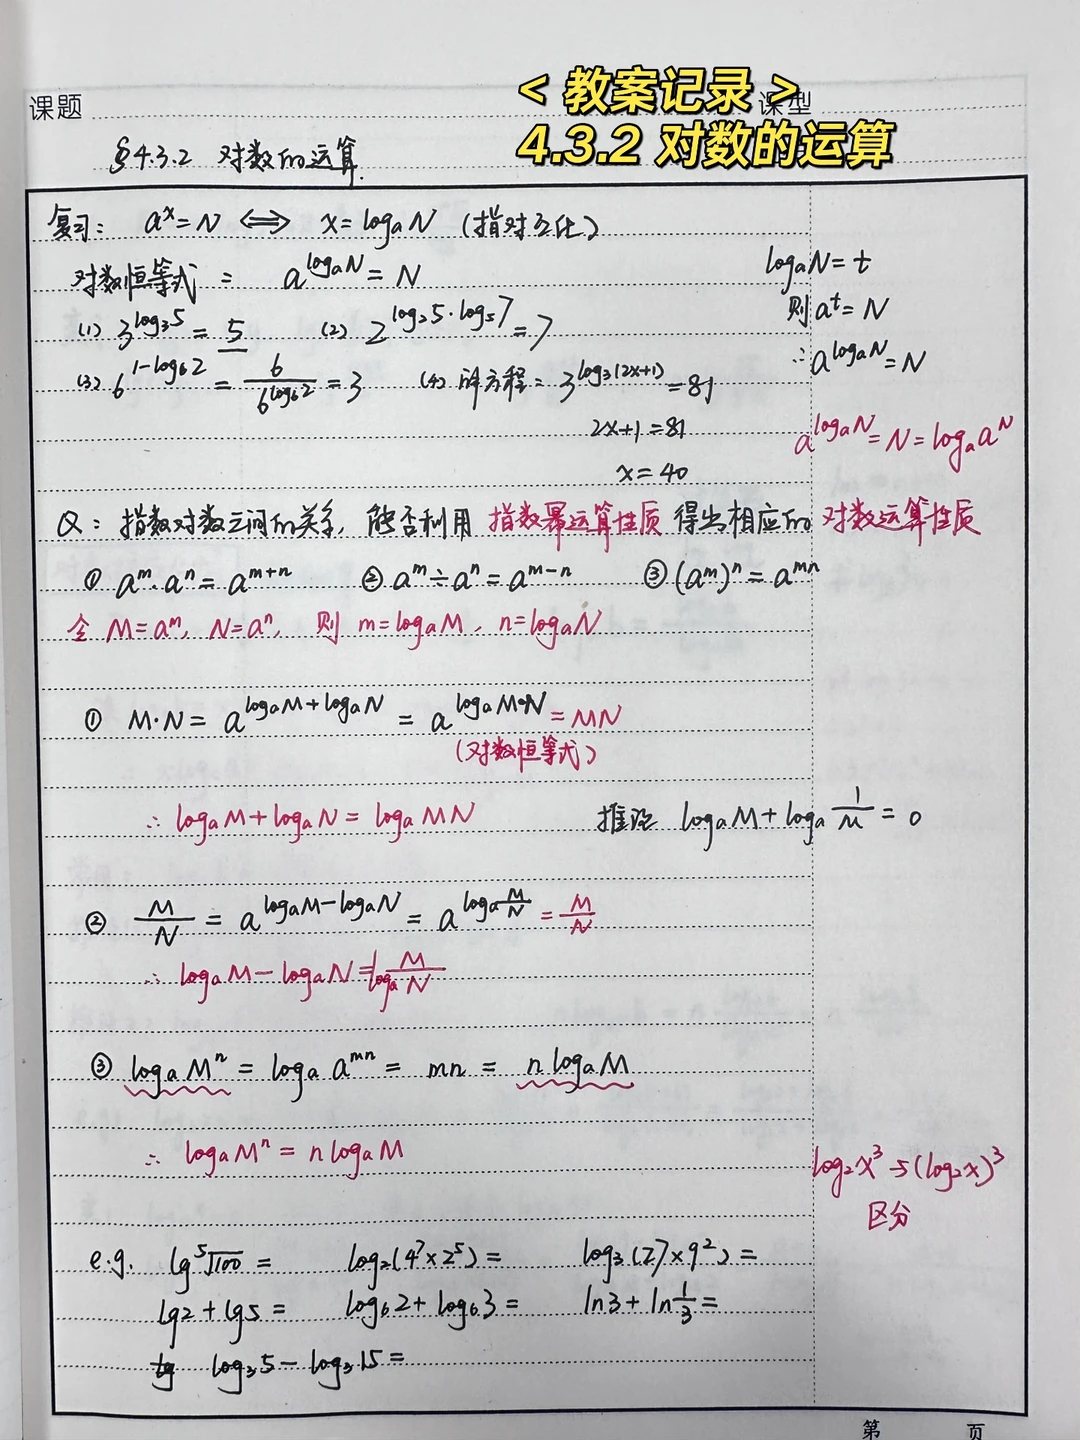 <教案记录>
4.3.2 对数的运算
课题 课型
§4.3.2 对数的运算.
复习: aˣ=N ⟺ x=logₐN (指对互化)
对数恒等式: a^(logₐN)=N
logₐN=t
则 aᵗ=N
∴ a^(logₐN)=N
(1) 3^(log₃5)=5 (2) 2^(log₂5·log₅7)=7
(3) 6^(1-log₆2)=6/6^(log₆2)=3 (4) 解方程: 3^(log₃(2x+1))=81
2x+1=81
x=40
a^(logₐN)=N=logₐa^N
Q: 指数对数之间的关系, 能否利用 指数幂运算性质 得出相应的 对数运算性质
① aᵐ·aⁿ=aᵐ⁺ⁿ ② aᵐ÷aⁿ=aᵐ⁻ⁿ ③ (aᵐ)ⁿ=aᵐⁿ
令 M=aᵐ, N=aⁿ, 则 m=logₐM, n=logₐN
① M·N=a^(logₐM+logₐN)=a^(logₐM·N)=MN
(对数恒等式)
∴ logₐM+logₐN=logₐMN 推论 logₐM+logₐ1/M=0
② M/N=a^(logₐM-logₐN)=a^(logₐM/N)=M/N
∴ logₐM-logₐN=logₐM/N
③ logₐMⁿ=logₐaᵐⁿ=mn=nlogₐM
∴ logₐMⁿ=nlogₐM
log₂x³与(log₂x)³
区分
e.g. lg⁵√100= log₂(4⁷×2⁵)= log₃(27×9²)=
lg2+lg5= log₆2+log₆3= ln3+ln1/3=
log₃5-log₃15=
第 页